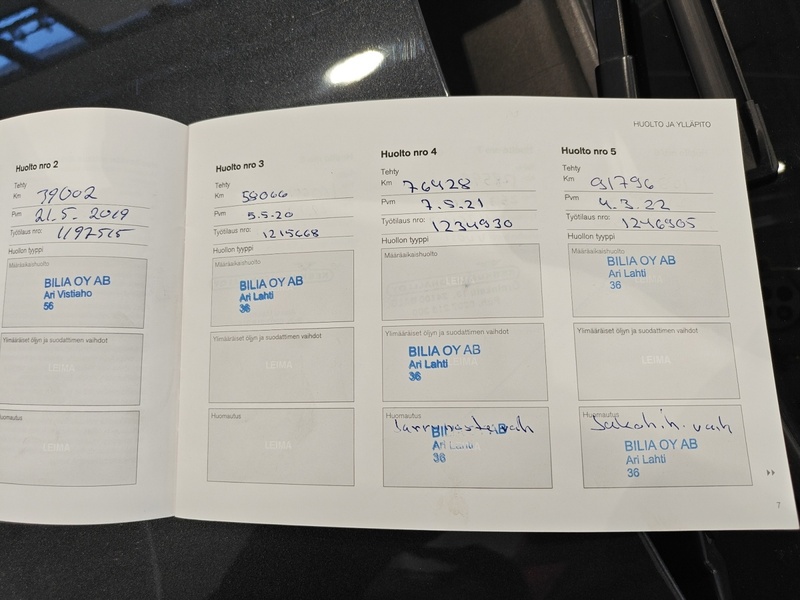 HUOLTO JA YLLÄPITO
Huolto nro 2
Tehty
Km 39002
Pvm 21.5. 2019
Työtilaus nro: 1197515
Huollon tyyppi
Määräaikaishuolto
BILIA OY AB
Ari Vistiaho
56
Ylimääräiset öljyn ja suodattimen vaihdot
LEIMA
Huomautus
LEIMA
Huolto nro 3
Tehty
Km 58066
Pvm 5.5.20
Työtilaus nro: 1215668
Huollon tyyppi
Määräaikaishuolto
BILIA OY AB
Ari Lahti
36
Ylimääräiset öljyn ja suodattimen vaihdot
LEIMA
Huomautus
LEIMA
Huolto nro 4
Tehty
Km 76428
Pvm 7.5.21
Työtilaus nro: 1234930
Huollon tyyppi
Määräaikaishuolto
LEIMA
Ylimääräiset öljyn ja suodattimen vaihdot
BILIA OY AB
Ari Lahti
36
Huomautus
Jarruneste vaih
BILIA OY AB
Ari Lahti
36
Huolto nro 5
Tehty
Km 91796
Pvm 4.3.22
Työtilaus nro: 1246905
Huollon tyyppi
Määräaikaishuolto
BILIA OY AB
Ari Lahti
36
Ylimääräiset öljyn ja suodattimen vaihdot
LEIMA
Huomautus
Jakoh.h. vaih
BILIA OY AB
Ari Lahti
36
7